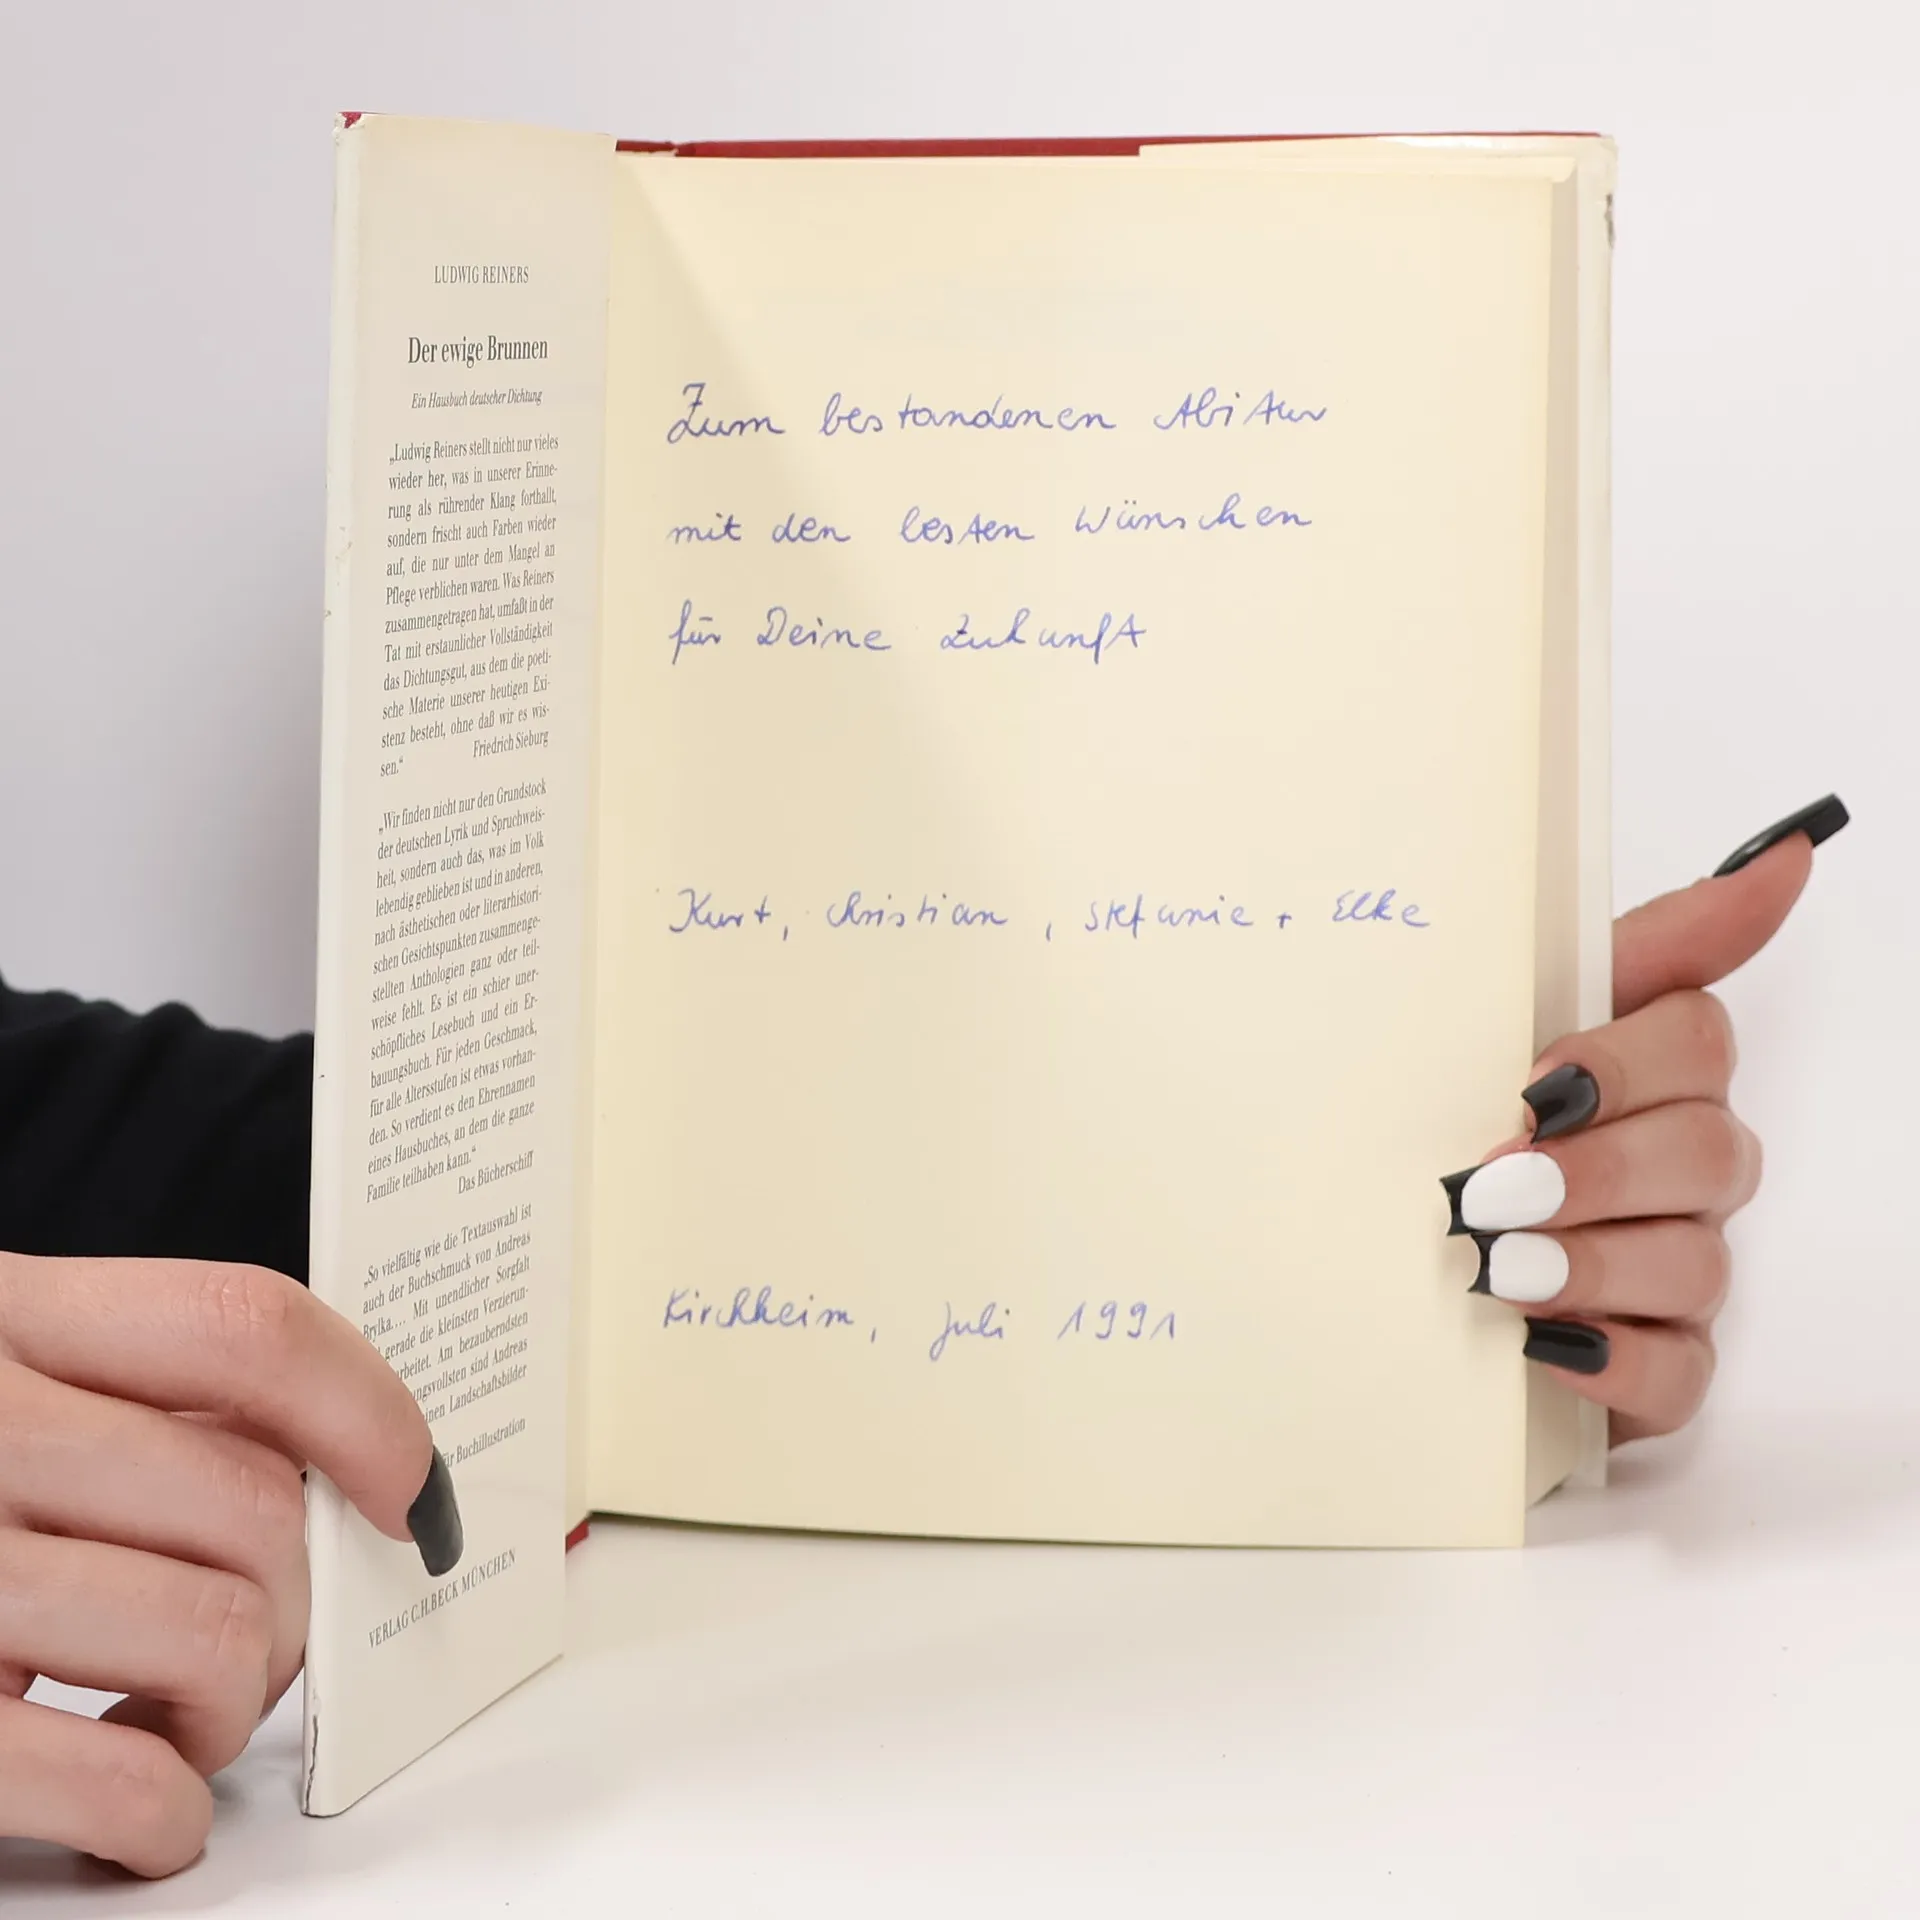 LUDWIG REINERS
Der ewige Brunnen
Ein Hausbuch deutscher Dichtung
„Ludwig Reiners stellt nicht nur vieles
wieder her, was in unserer Erinne-
rung als rührender Klang forthallt,
sondern frischt auch Farben wieder
auf, die nur unter dem Mangel an
Pflege verblichen waren. Was Reiners
zusammengetragen hat, umfaßt in der
Tat mit erstaunlicher Vollständigkeit
das Dichtungsgut, aus dem die poeti-
sche Materie unserer heutigen Exi-
stenz besteht, ohne daß wir es wis-
sen.“ Friedrich Sieburg
„Wir finden nicht nur den Grundstock
der deutschen Lyrik und Spruchweis-
heit, sondern auch das, was im Volk
lebendig geblieben ist und in anderen,
nach ästhetischen oder literarhistori-
schen Gesichtspunkten zusammenge-
stellten Anthologien ganz oder teil-
weise fehlt. Es ist ein schier uner-
schöpfliches Lesebuch und ein Er-
bauungsbuch. Für jeden Geschmack,
für alle Altersstufen ist etwas vorhan-
den. So verdient es den Ehrennamen
eines Hausbuches, an dem die ganze
Familie teilhaben kann.“
Das Bücherschiff
„So vielfältig wie die Textauswahl ist
auch der Buchschmuck von Andreas
Brylka.... Mit unendlicher Sorgfalt
gerade die kleinsten Verzierun-
rbeitet. Am bezauberndsten
ngsvollsten sind Andreas
inen Landschaftsbilder
ür Buchillustration
VERLAG C.H.BECK MÜNCHEN
Zum bestandenen Abitur
mit den besten Wünschen
für Deine Zukunft
Kurt, Christian, Stefanie + Elke
Kirchheim, Juli 1991